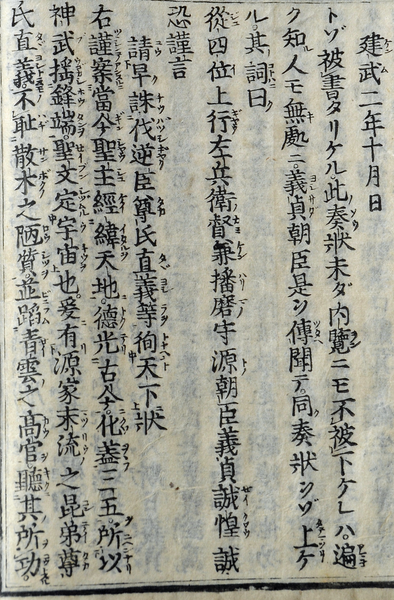 建武二年十月日
トゾ被書タリケル此奏狀未ダ内覽ニモ不被下ケレハ。遍
ク知人モ無處ニ。義貞朝臣是ヲ傳聞テ。同奏狀ヲゾ上ケ
ル。其詞曰
從四位上行左兵衛督兼播磨守源朝臣義貞誠惶誠
恐謹言
請早誅伐逆臣尊氏直義等徇天下狀
右謹案當今聖主經緯天地。德光古今。化蓋三五。所以
神武揺鋒端。聖文定宇宙也。爰有源家末流之昆弟尊
氏直義。不恥散木之陋質。並蹈青雲之高官。聽其所功。